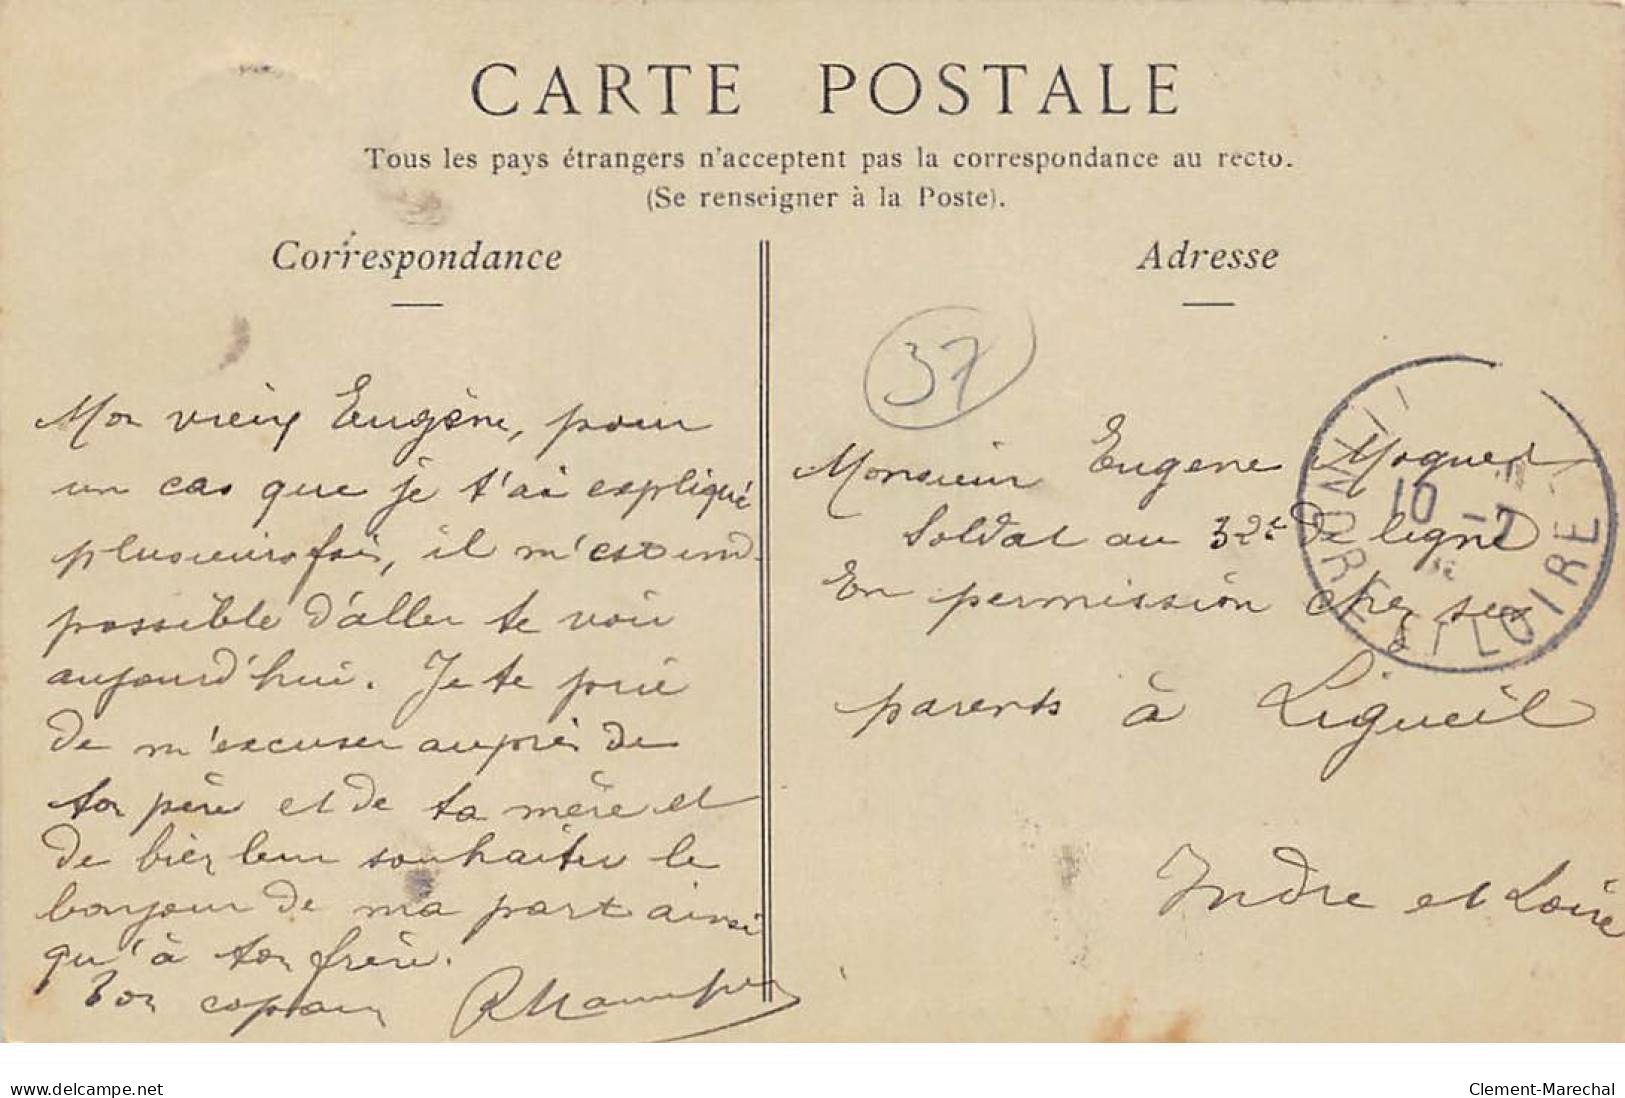 CARTE POSTALE
Tous les pays étrangers n'acceptent pas la correspondance au recto.
(Se renseigner à la Poste).
Correspondance
Mon vieux Eugène, pour
un cas que je t'ai expliqué
plusieurs fois, il m'est im-
possible d'aller te voir
aujourd'hui. Je te prie
de m'excuser auprès de
ton père et de ta mère et
de bien leur souhaiter le
bonjour de ma part ainsi
qu'à ton frère.
Ton copain
Adresse
37
Monsieur Eugene
Soldat au 32e de ligne
En permission chez ses
parents à Ligueil
Indre et Loire
10 -7
INDRE ET LOIRE
www.delcampe.net
Clement-Marechal